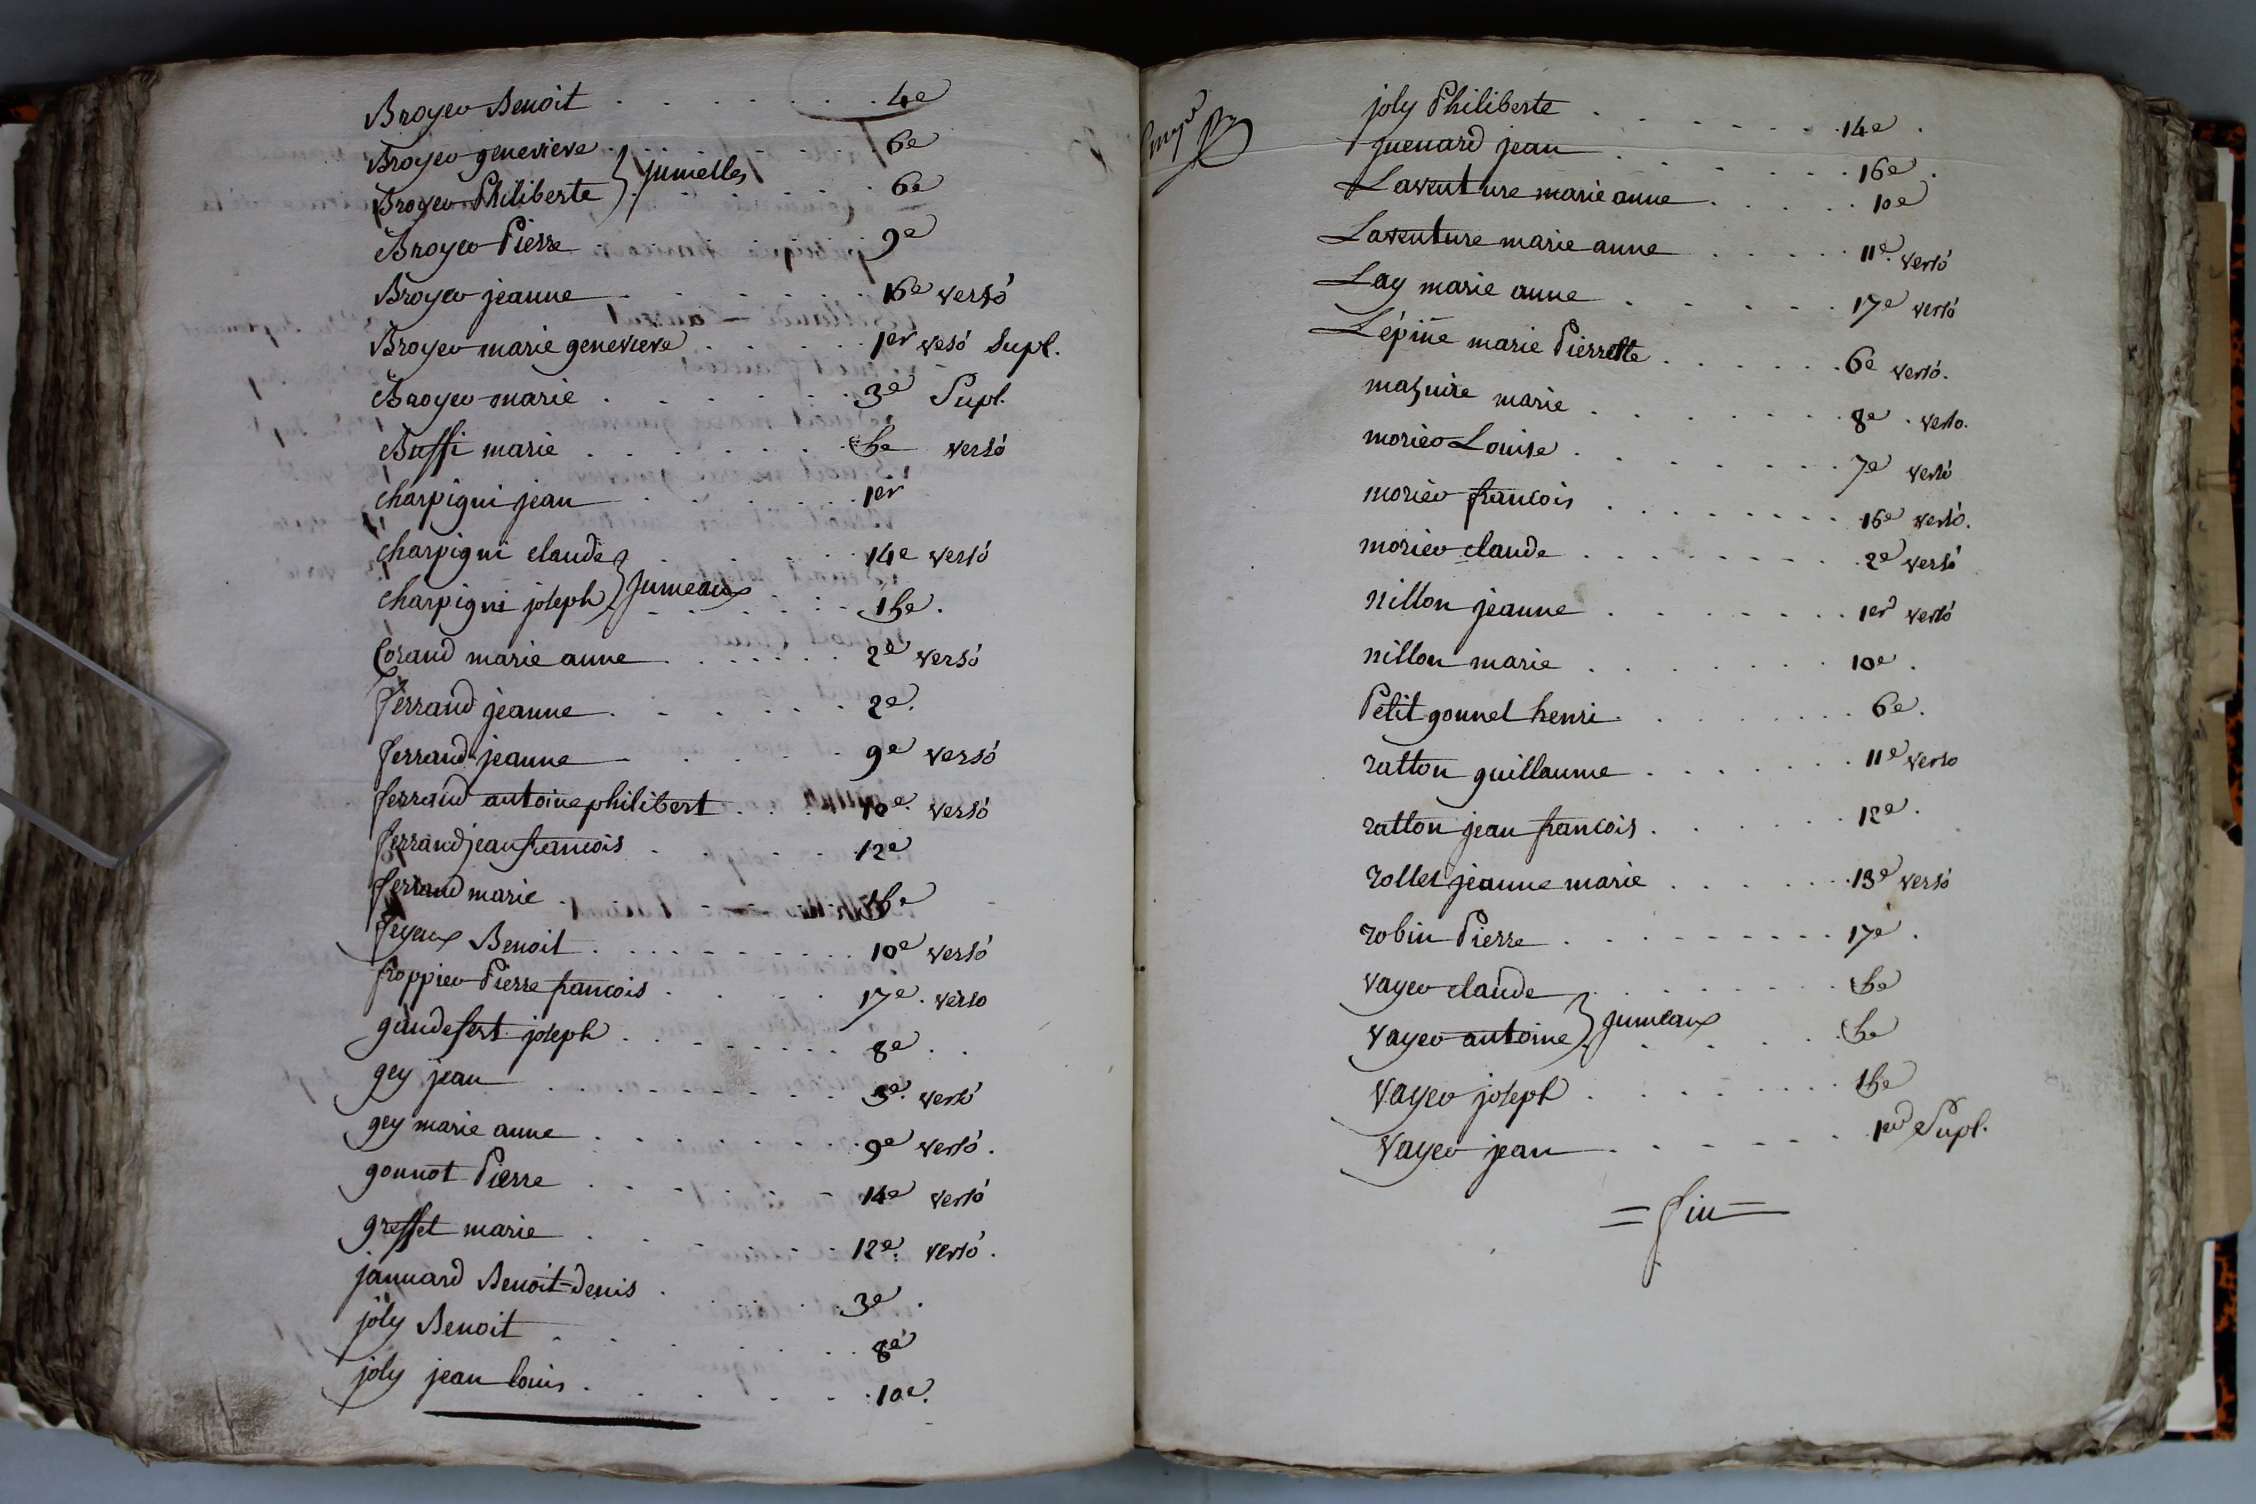 Broyer Benoit . . . . . . . 4e
Broyer genevieve . . . . . . . 6e
Broyer Philiberte } jumelles . . . . 6e
Broyer Pierre 9e
Broyer jeanne . . . . . . 16e versó
Broyer marie genevieve . . . . . 1er vesó Supl.
Broyer marie . . . . . . . 3e Supl.
Buffi marie . . . . . . . 5e versó
charpigni jean . . . . . . 1er
charpigni claude . . . . . . 14e versó
charpigni joseph } jumeaux . . . 15e.
Corand marie anne . . . . . . 2e versó
ferrand jeanne . . . . . . 2e.
ferrand jeanne . . . . . 9e versó
ferrand antoine philibert . . . . 10e. versó
ferrand jean francois . . . . 12e
ferrand marie . . . . 15e
feyeux Benoit . . . . . . . . . 10e versó
froppier Pierre francois . . . . 17e. verso
gaudefert joseph . . . . . . . . 8e . .
gey jean . . . . . . . . . 3e. versó
gey marie anne . . . . . . . . 9e versó.
gonnot Pierre . . . . . . . 14e versó
greffet marie . . . . . . . 12e. versó.
januard Benoit-denis . . . . . 3e .
joly Benoit . . . . . . . . 8e
joly jean louis . . . . . . . 10e.
joly Philiberte . . . . . . . 14e .
juenard jean . . . . . . . 16e .
Laventure marie anne . . . . . 10e
Laventure marie anne . . . . . 11e. versó
Lay marie anne . . . . . . 17e versó
Lépine marie Pierrette . . . . . . 6e versó.
mazuire marie . . . . . . . . 8e . verso.
morier Louise . . . . . . . 7e versó
morier francois . . . . . . . . 16e versó.
morier claude . . . . . . . . . 2e versó
nillon jeanne . . . . . . . 1er versó
nillon marie . . . . . . . . 10e .
Petit gonnel henri . . . . . . . . 6e.
ratton guillaume . . . . . . . 11e verso
ratton jean francois . . . . . . 12e .
rollet jeanne marie . . . . . . 13e versó
robin Pierre . . . . . . . . . 17e .
vayer claude . . . . . . . . 5e
vayer antoine } jumeaux . . . . . 5e
vayer joseph . . . . . . . 15e
vayer jean . . . . . . . 1er Supl.
= fin =